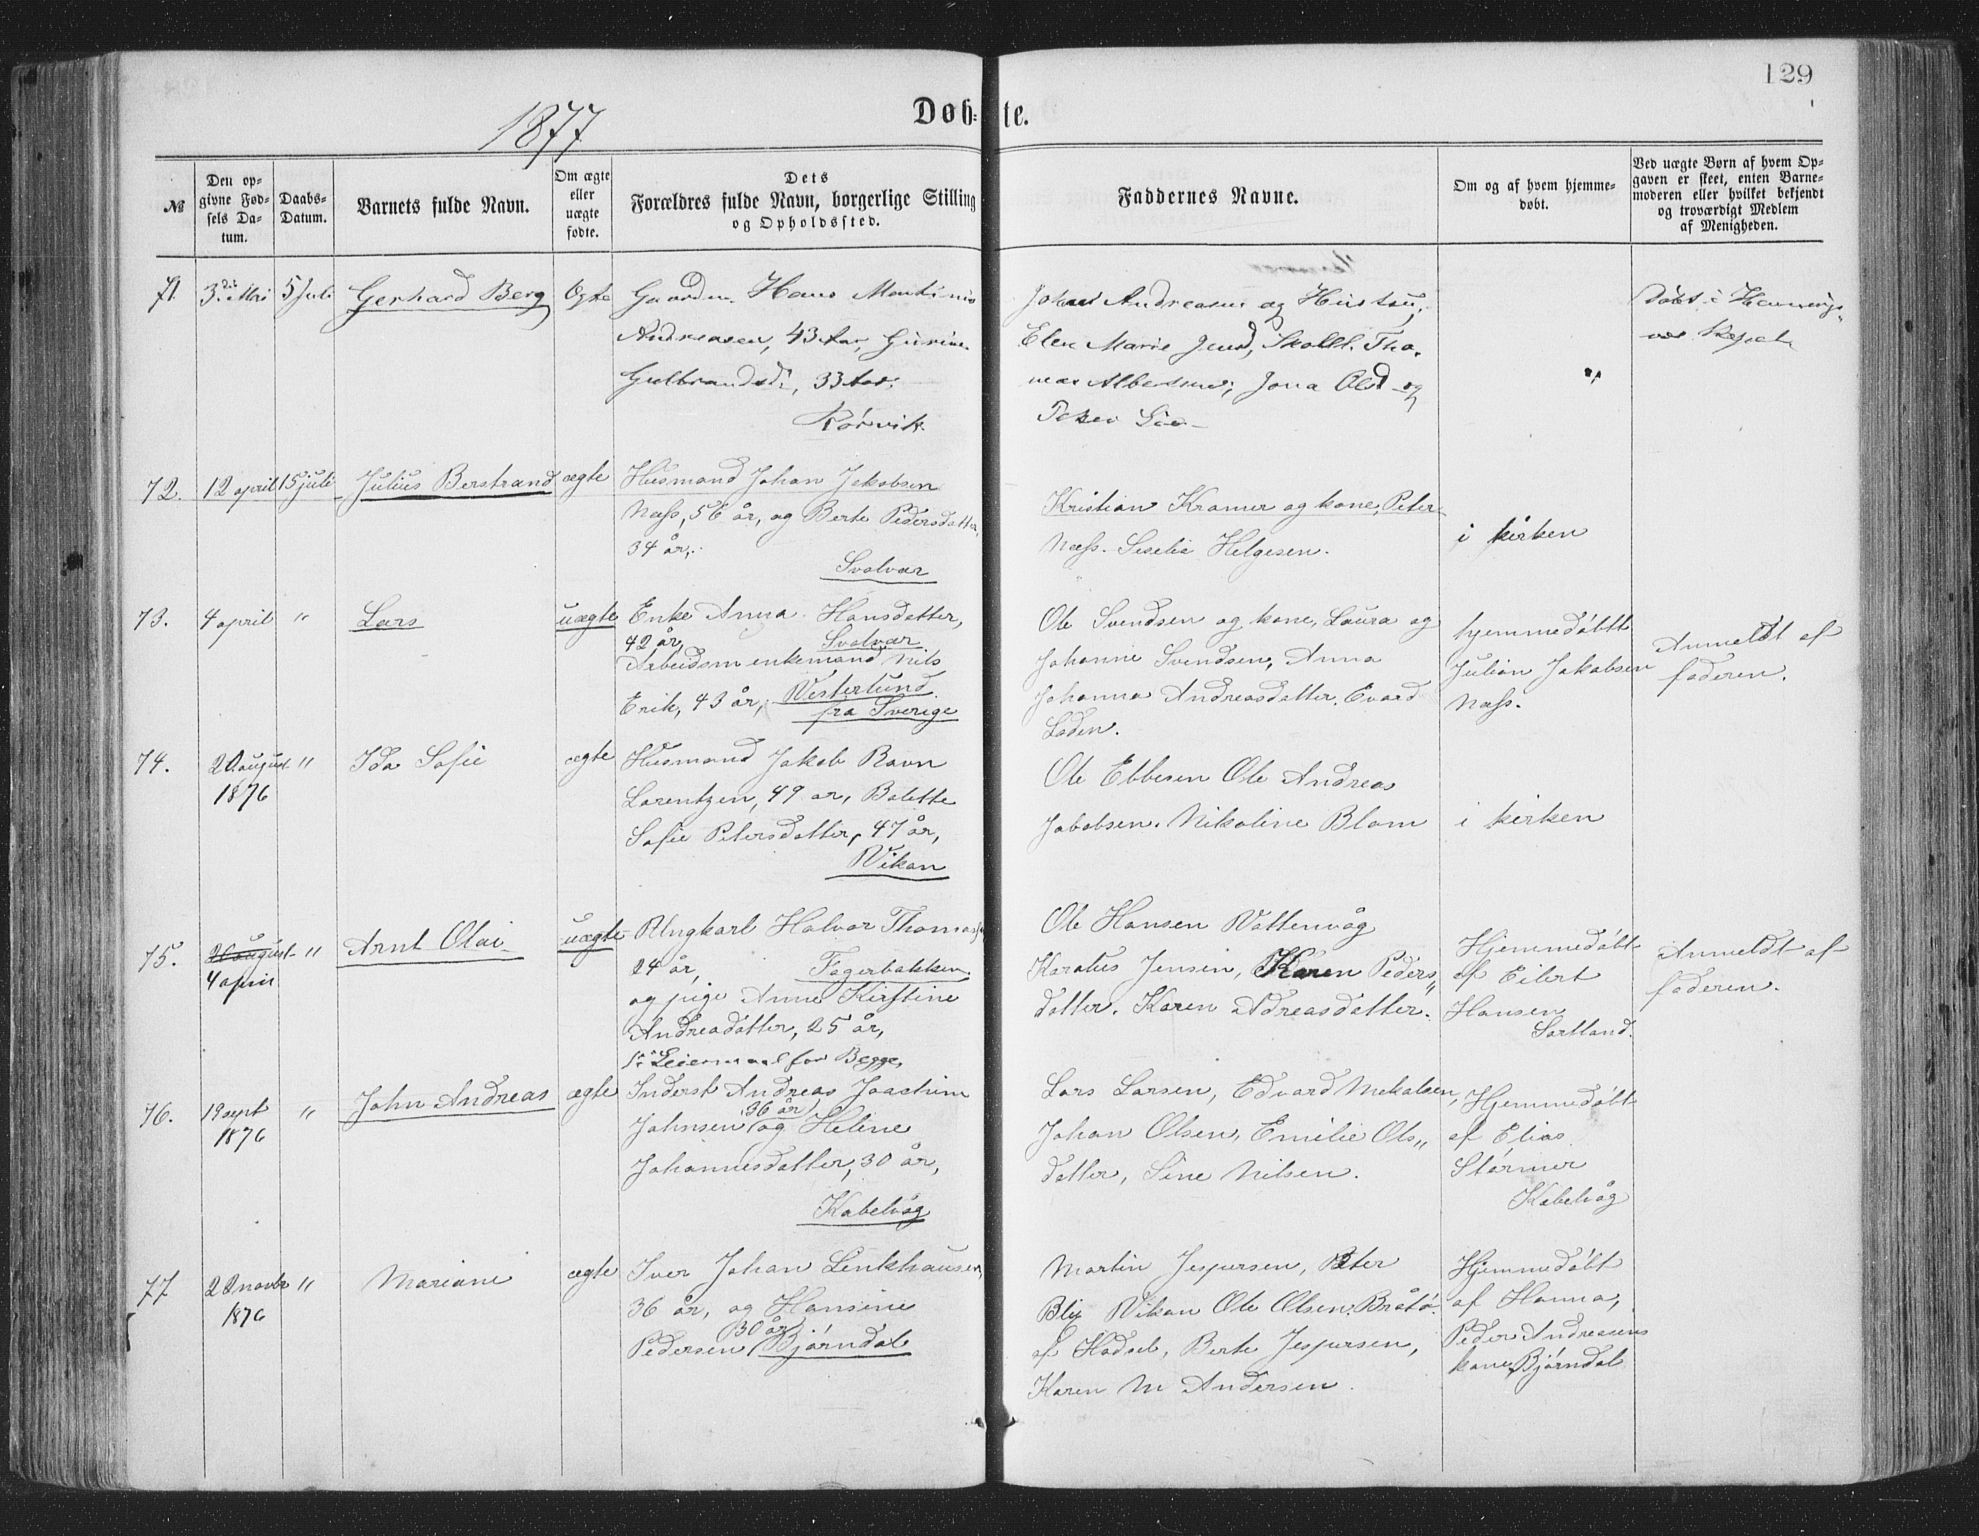 129
1877
Døb-te.
№
Den opgivne Fødsels Datum.
Daabs-Datum.
Barnets fulde Navn.
Om ægte eller uægte fødte.
Dets Forældres fulde Navn, borgerlige Stilling og Opholdssted.
Faddernes Navne.
Om og af hvem hjemmedøbt.
Ved uægte Børn af hvem Opgaven er skeet, enten Barnemoderen eller hvilket bekjendt og troværdigt Medlem af Menigheden.
71. 3die Mai 5 Juli Gerhard Berg Ægte
Gaardm. Hans Martinus
Andreasen, 43 Aar,
Gulbrandsd:, 33 Aar.
Rørvik
Johan Andreasen og Hustru,
Elen Marie Jensd, Tho-
mas Albertsen, Jona Olsd og
Peder
Døbt i Hennings-
vær Kapel
72. 12 april 15 juli Julius Berstrand ægte
Husmand Johan Jakobsen
Næss, 56 år, og Berte Pedersdatter,
34 år,
Svolvær
Kristian Kramer og kone, Peter
Næss. Seselie Helgesen.
i kirken
73. 4 april " Lars uægte
Enke Anna Hansdatter,
42 år, Svolvær
Arbeidsm enkemand Nils
Erik, 43 år, Westerlund
fra Sverige
Ole Svendsen og kone, Laura og
Johanne Svendsen, Anna
Johanna Andreasdatter. Evard
Loden.
hjemmedøbt
Julian Jakobsen
Næss.
Anmeldt af
faderen.
74. 20 august 1876 " Ida Sofie ægte
Husmand Jakob Ravn
Lorentzen, 49 år, Bolette
Sofie Petersdatter, 47 år,
Wikan
Ole Ebbesen Ole Andreas
Jabobsen. Nikoline Blom
i kirken
75. 20 august 4 april " Arnt Olai uægte
Ungkarl Halvor Thomas
24 år, Fagerbakken
og pige Anne Kirstine
Andreadatter, 25 år,
1ste Leiermaal for Begge,
Ole Hansen Wattenvåg
Karatus Jensen, Karen Peders"
datter. Karen Adreasdatter.
Hjemmedøbt
af Eilert
Hansen
Sortland.
Anmeldt af
faderen.
76. 19 sept 1876 " John Andreas ægte
Inderst Andreas Joachim
36 år
Johnsen og Heline
Johannesdatter, 30 år,
Kabelvåg
Lars Larsen, Edvard Mekalsen,
Johan Olsen, Emilie Ols"
datter, Sine Nilsen.
Hjemmedøbt
af Elias
Størmer
Kabelvåg
77 22 novbr 1876 " Mariani ægte
Iver Johan Lenkhausen,
36 år, og Hansine
30 år
Pedersen Bjørndal
Martin Jespersen, Peter
Blix Wikan Ole Olsen Bråtø.
af Hadsel, Berte Jespersen,
Karen M Andersen.
Hjemmedøbt
af Hanna,
Peder Andreasens
kone Bjørndal